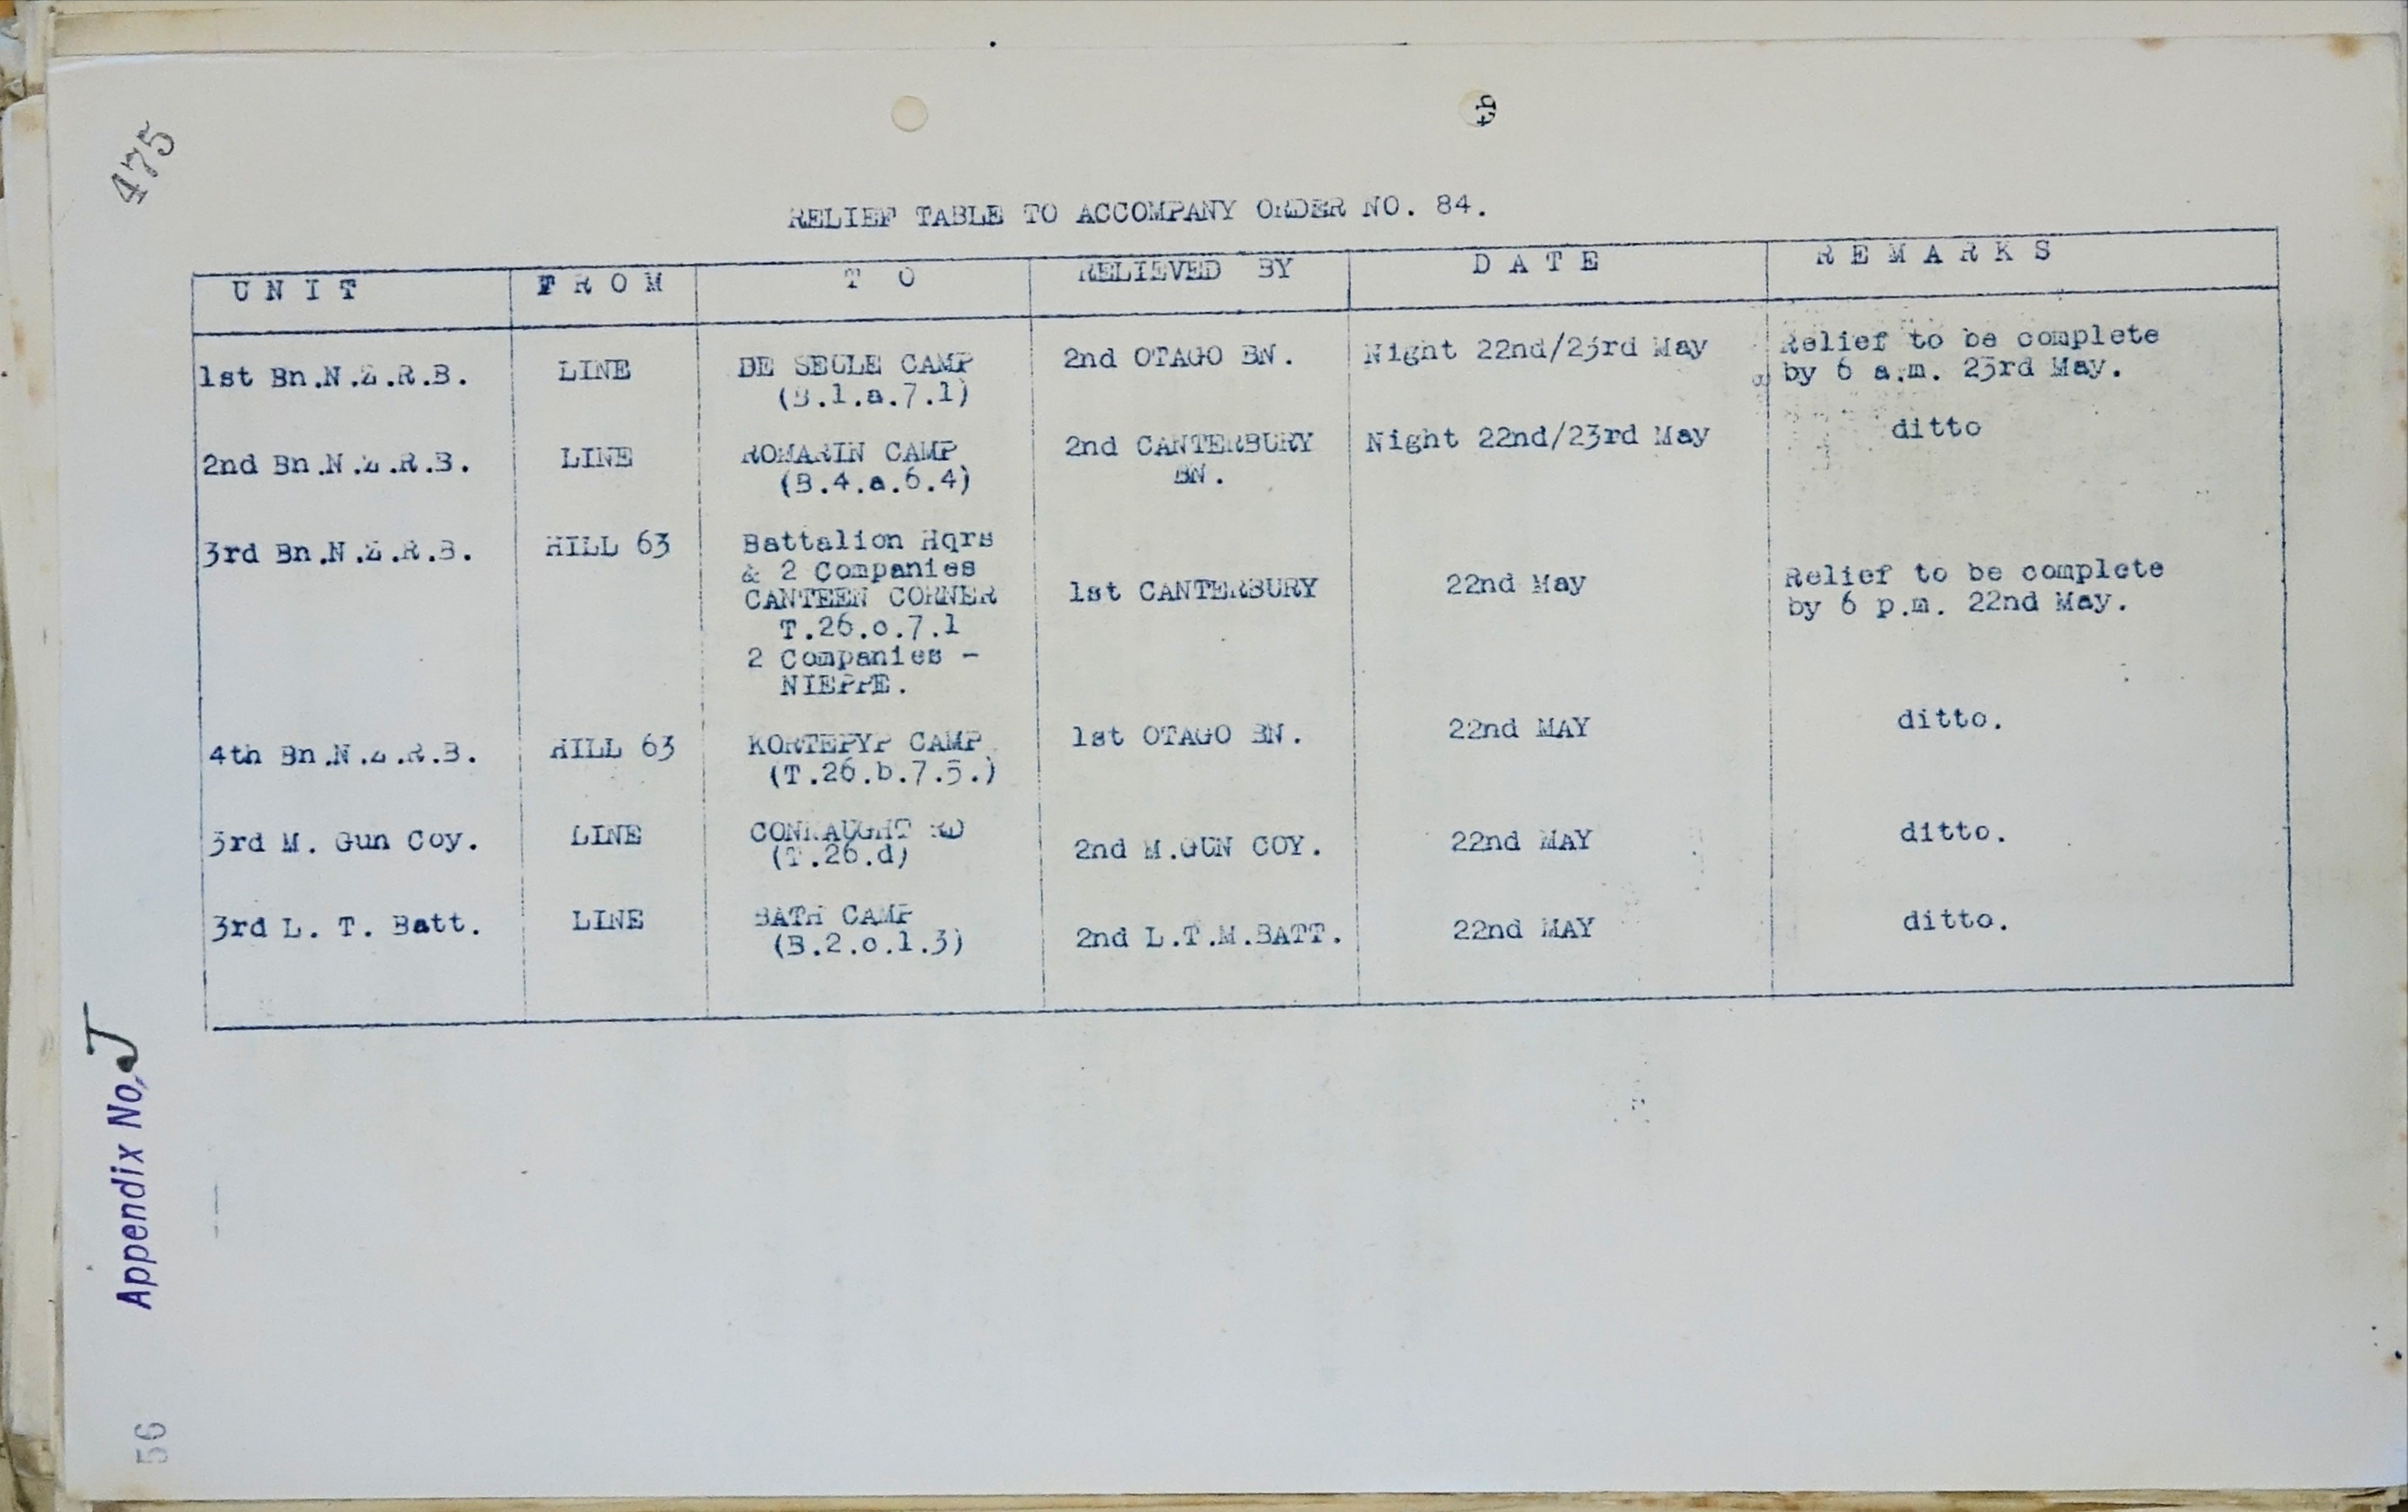 475
RELIEF TABLE TO ACCOMPANY ORDER NO. 84.
UNIT FROM TO RELIEVED BY DATE REMARKS
1st Bn.N.Z.R.B. LINE DE SEULE CAMP 2nd OTAGO BN. Night 22nd/23rd May Relief to be complete
(B.1.a.7.1) by 6 a.m. 23rd May.
2nd Bn.N.Z.R.B. LINE ROMARIN CAMP 2nd CANTERBURY Night 22nd/23rd May ditto
(B.4.a.6.4) BN.
3rd Bn.N.Z.R.B. HILL 63 Battalion Hqrs
& 2 Companies
CANTEEN CORNER 1st CANTERBURY 22nd May Relief to be complete
T.26.c.7.1 by 6 p.m. 22nd May.
2 Companies -
NIEPPE.
4th Bn.N.Z.R.B. HILL 63 KORTEPYP CAMP 1st OTAGO BN. 22nd MAY ditto.
(T.26.b.7.5.)
3rd M. Gun Coy. LINE CONNAUGHT RD 2nd M.GUN COY. 22nd MAY ditto.
(T.26.d)
3rd L. T. Batt. LINE BATH CAMP 2nd L.T.M.BATT. 22nd MAY ditto.
(B.2.c.1.3)
Appendix No. J
56